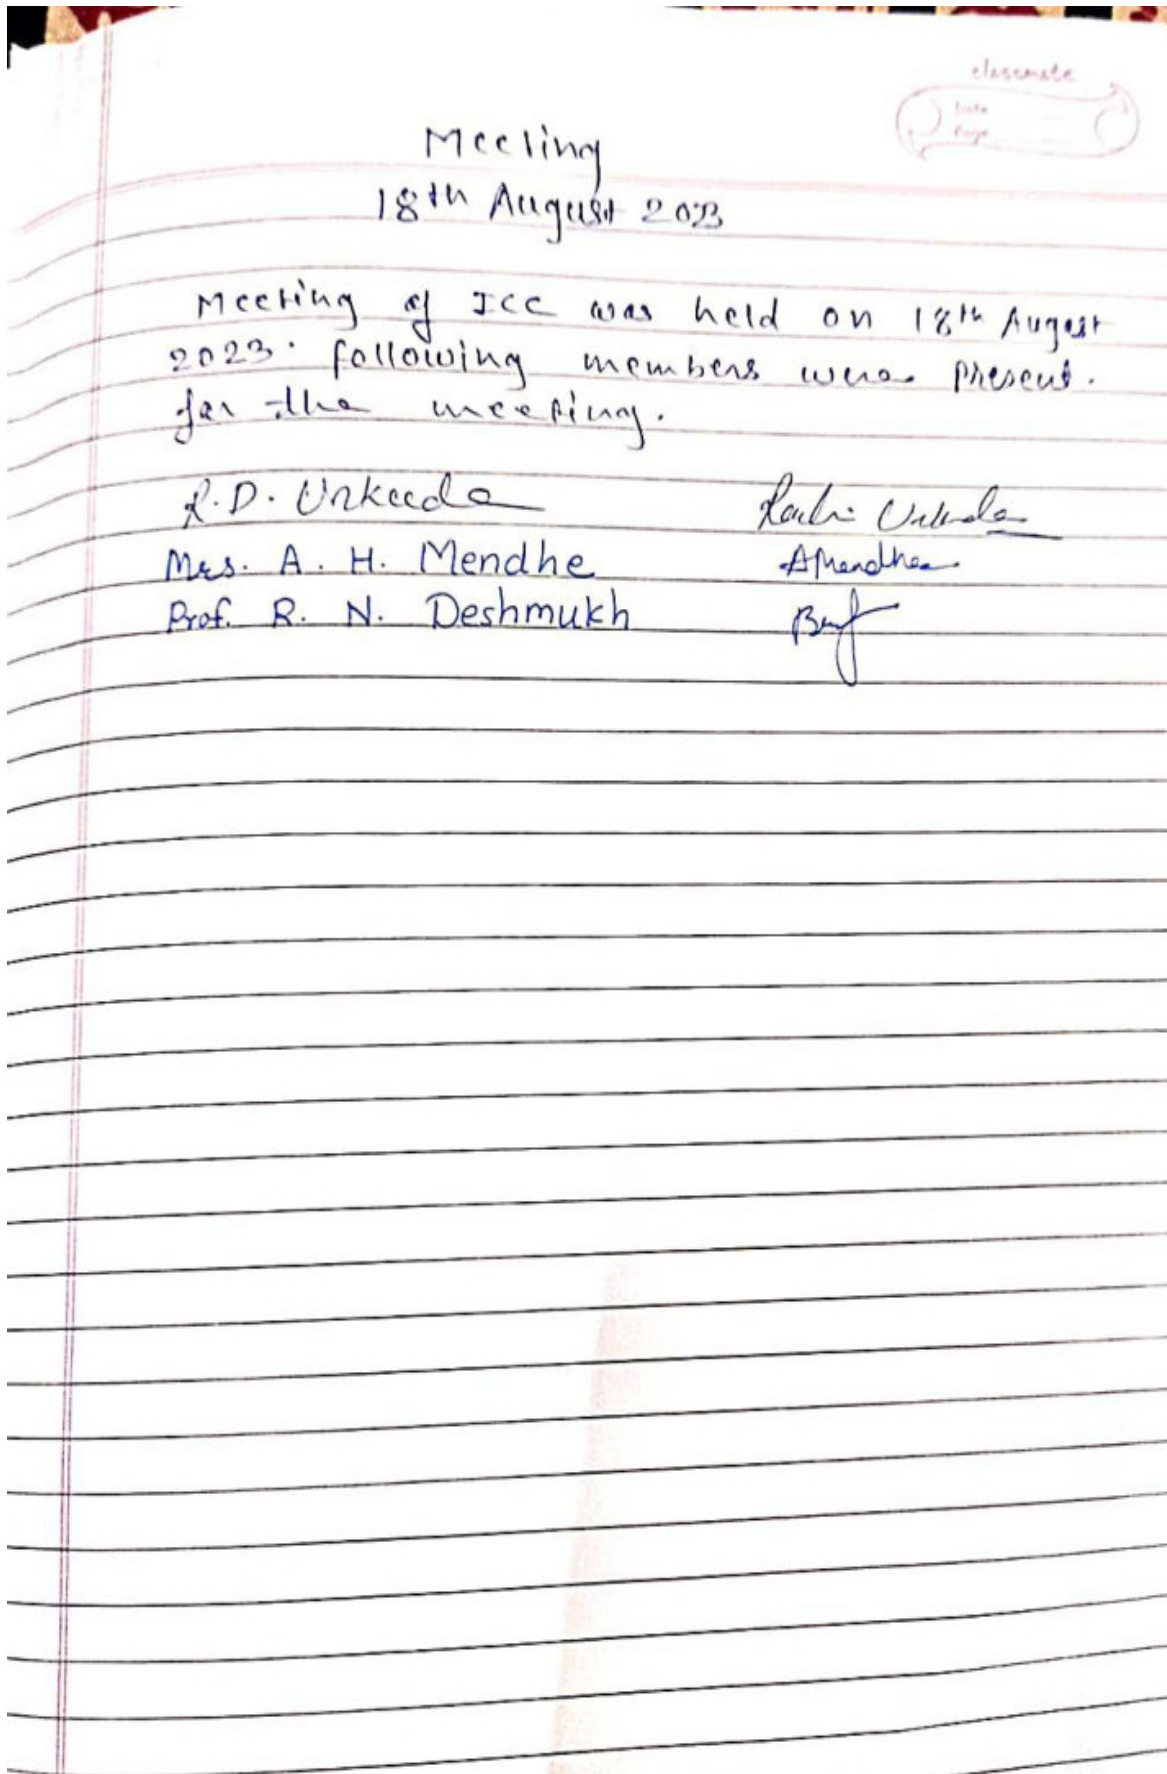 classmate
Date
Page
Meeting
18th August 2023
Meeting of ICC was held on 18th August
2023. following members were present.
for the meeting.
R.D. Urkunde
Mrs. A. H. Mendhe AMendhe
Prof. R. N. Deshmukh